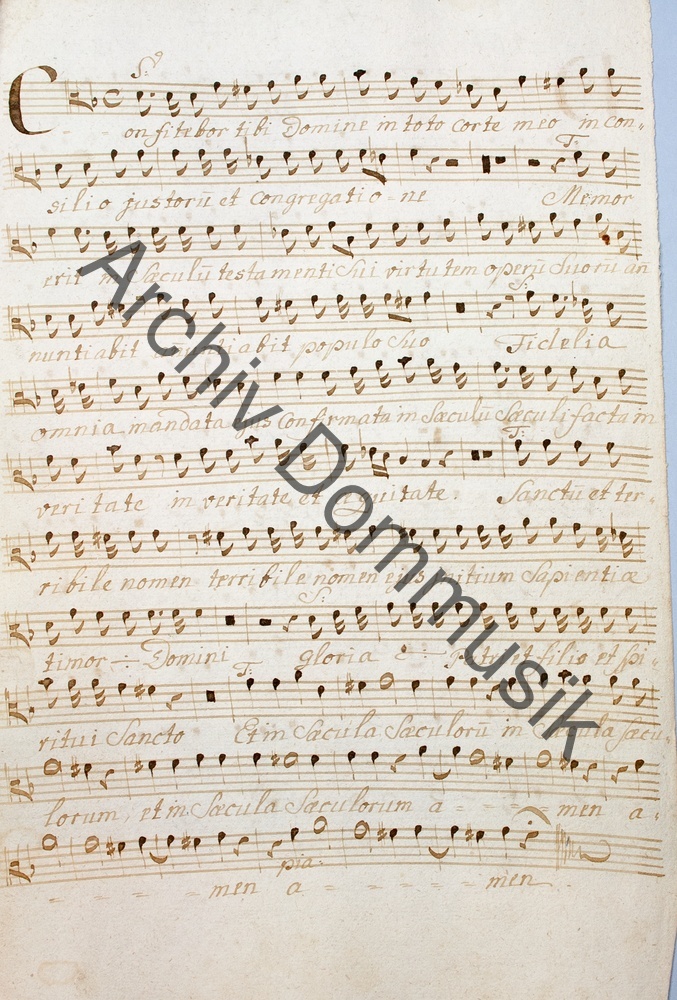 S:
Confitebor tibi Domine in toto corte meo in con-
T:
silio justorū et congregatio-ne Memor
erit in Sæculū testamenti Sui virtutem operū Suorū an
S:
nuntiabit tiabit populo Suo Fidelia
omnia mandata ejus Confirmata in Sæculū Sæculi facta in
T:
veritate in veritate et equitate. Sanctū et ter-
ribile nomen terribile nomen ejus initium Sapientiæ
S:
timor Domini gloria Patri et filio et spi-
T:
ritui Sancto Et in Sæcula Sæculorū in Sæcula Sæcu-
lorum, et in Sæcula Sæculorum a - - - - men a-
pia:
- - - - - men a - - - - - men
Archiv Dommusik